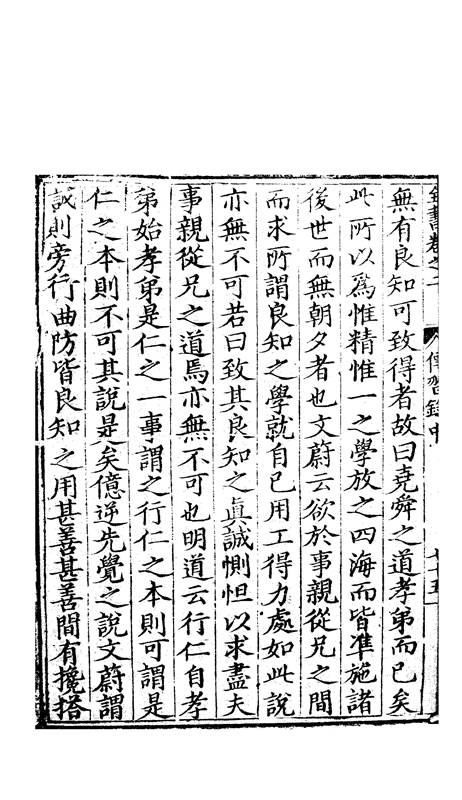 全書卷之 傳習錄中
無有良知可致得者故曰堯舜之道孝弟而已矣
此所以爲惟精惟一之學放之四海而皆凖施諸
後世而無朝夕者也文蔚云欲於事親從兄之間
而求所謂良知之學就自己用工得力處如此說
亦無不可若曰致其良知之眞誠惻怛以求盡夫
事親從兄之道焉亦無不可也明道云行仁自孝
弟始孝弟是仁之一事謂之行仁之本則可謂是
仁之本則不可其說是矣億逆先覺之說文蔚謂
誠則旁行曲防皆良知之用甚善甚善間有攙搭